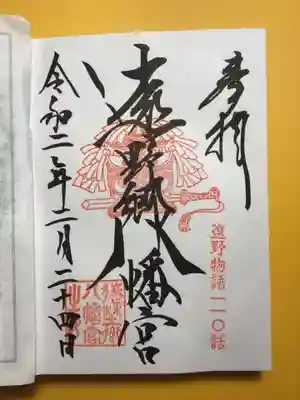 奉拝
遠野物語一一〇話
遠野郷八幡宮
令和二年二月二十四日